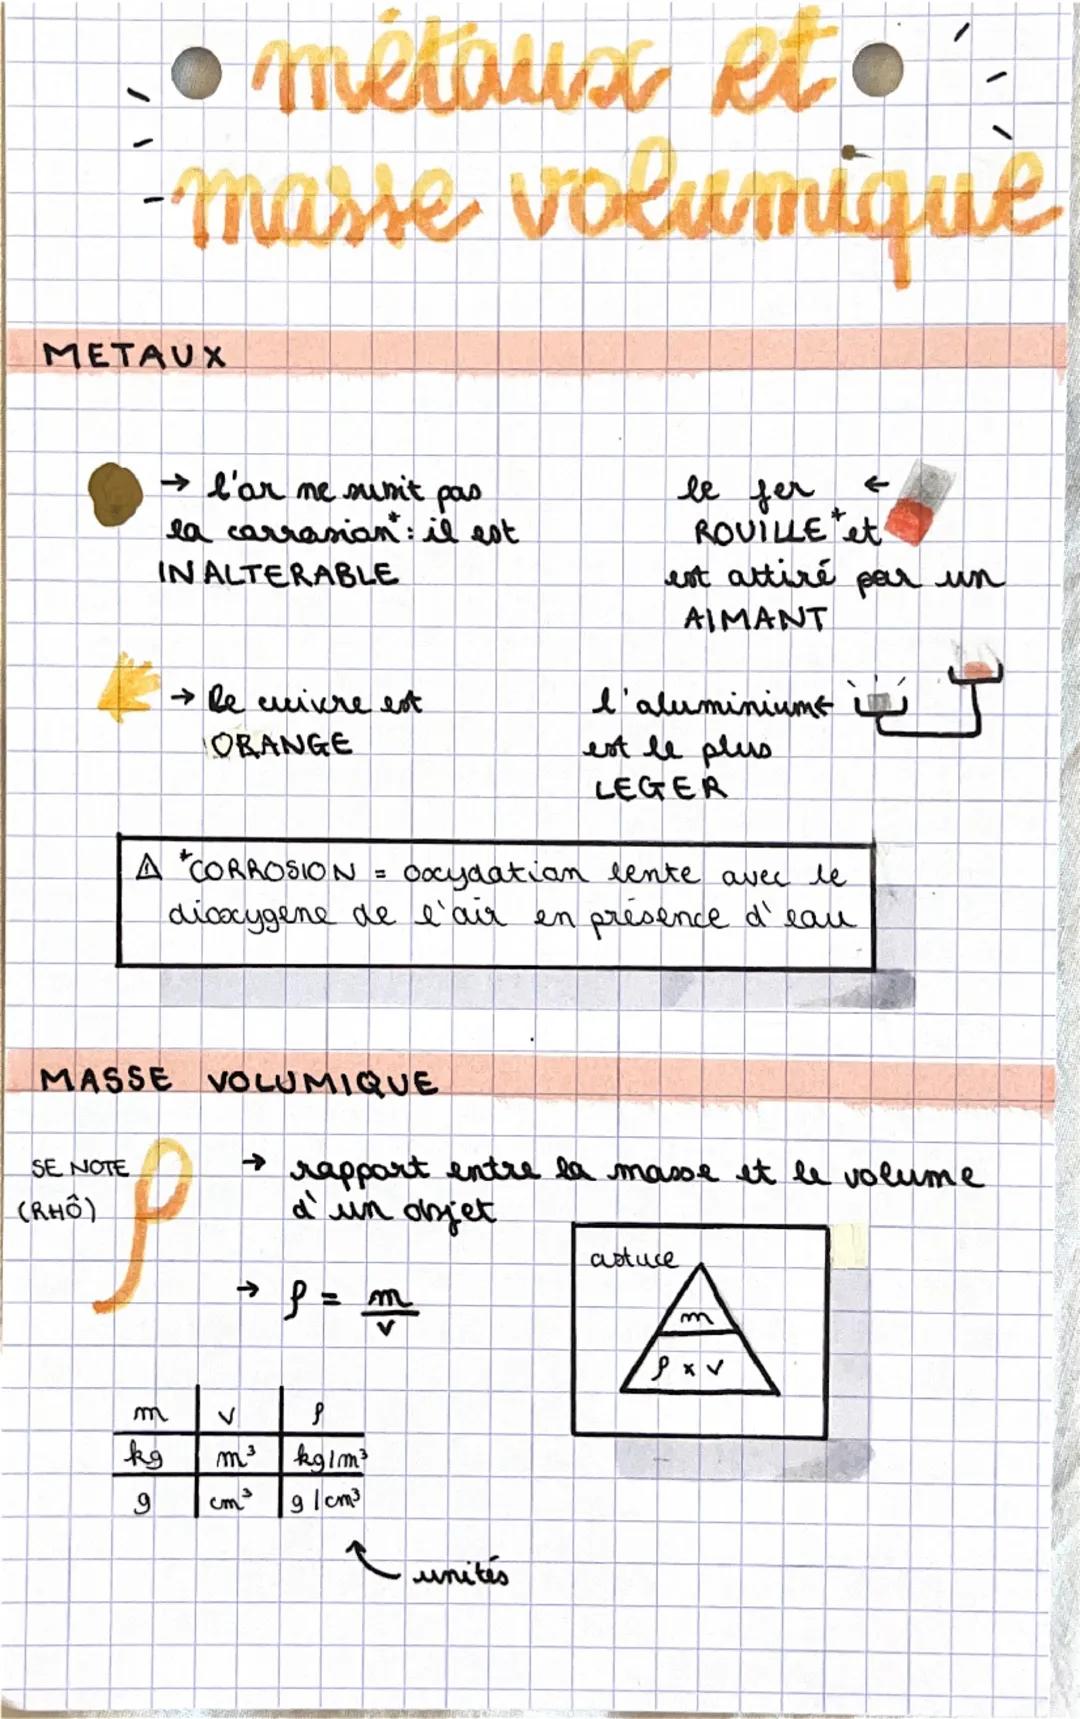 métaux et
masse volumique
METAUX
→ l'or ne subit pas
la corrosion* : il est
INALTERABLE
le fer ←
ROUILLE* et
est attiré par un
AIMANT
→ le cuivre est
ORANGE
l'aluminium ←
est le plus
LEGER
⚠ *CORROSION = oxydation lente avec le
dioxygene de l'air en présence d'eau
MASSE VOLUMIQUE
SE NOTE
(RHÔ)
ρ
→ rapport entre la masse et le volume
d'un objet
→ ρ = m/v
astuce
m
ρ x v
m v ρ
kg m³ kg/m³
g cm³ g/cm³
unités